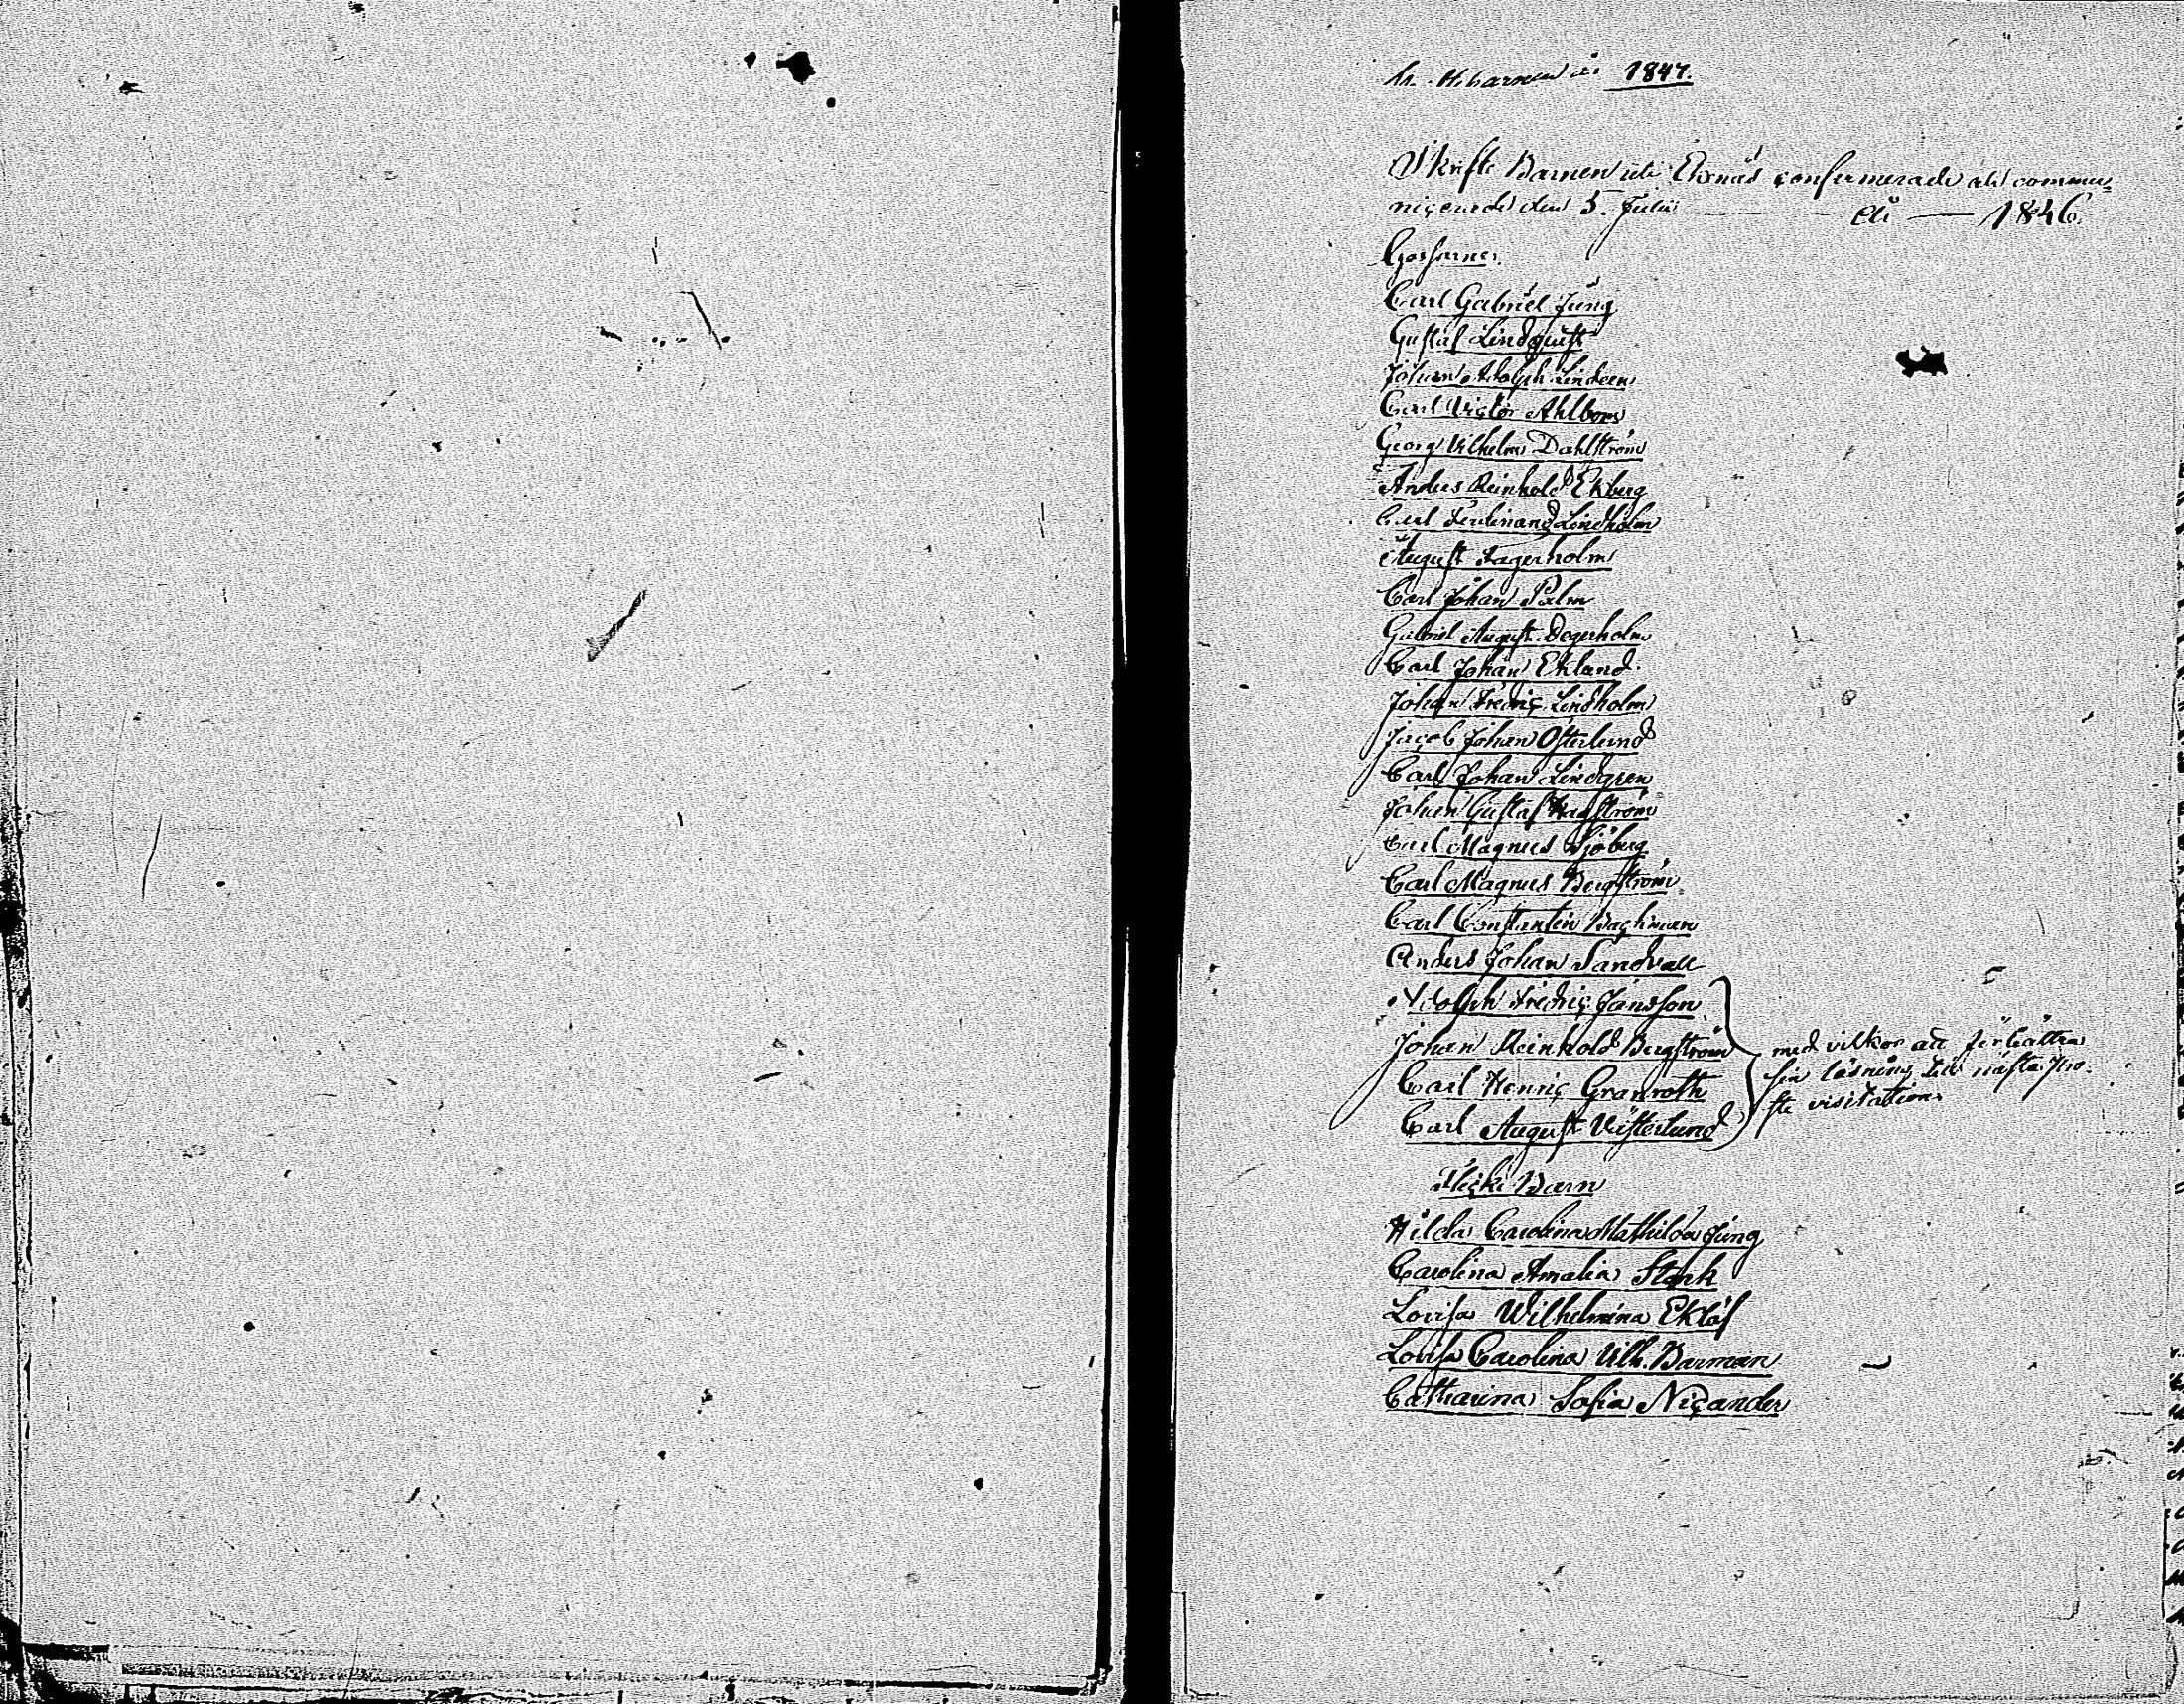 år 1847.
Skrifte Barnen uti Ekenäs confirmerade och commu-
nicerade den 5. Julii — år — 1846.
Gossarne.
Carl Gabriel Jung
Gustaf Lindquist
Johan Adolph Lindeen
Carl Victor Ahlbom
Georg Vilhelm Dahlström
Anders Reinhold Ekberg
Carl Ferdinand Lindholm
August Fagerholm
Carl Johan Palm
Gabriel August Degerholm
Carl Johan Eklund.
Johan Fredric Lindholm
Jacob Johan Österlund
Carl Johan Lindgren
Johan Gustaf Hagström
Carl Magnus Sjöberg
Carl Magnus Bergström
Carl Constantin Bachman
Anders Johan Sandvall
Adolph Fredric Jansson
Johan Reinhold Bergström
Carl Henric Granroth
Carl August Vesterlund
med vilkor att förbättra
sin läsning till nästa Pro-
ste visitation.
Flicke Barn
Hilda Carolina Mathilda Jung
Carolina Amalia Stark
Lovisa Wilhelmina Eklöf
Lovisa Carolina Vilh. Barman
Catharina Sofia Nicander